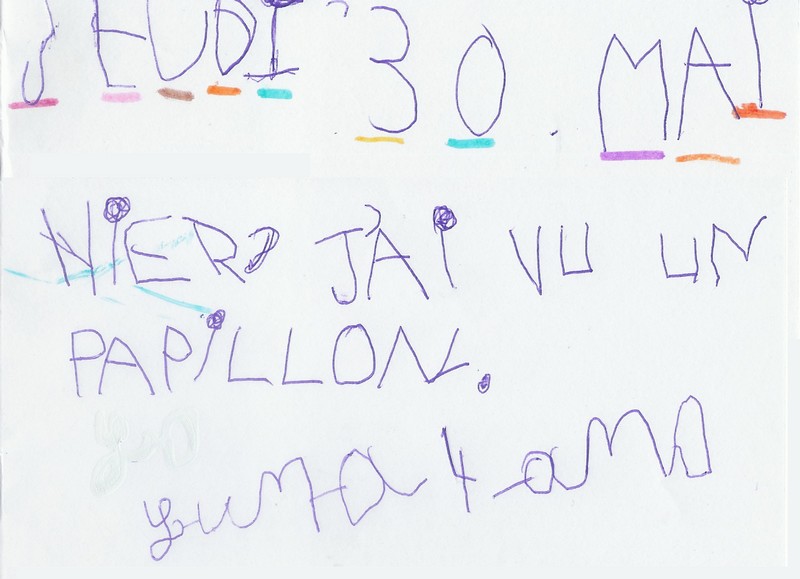 JEUDI 30. MAI
HIER, J'AI VU UN
PAPILLON.
4 ans